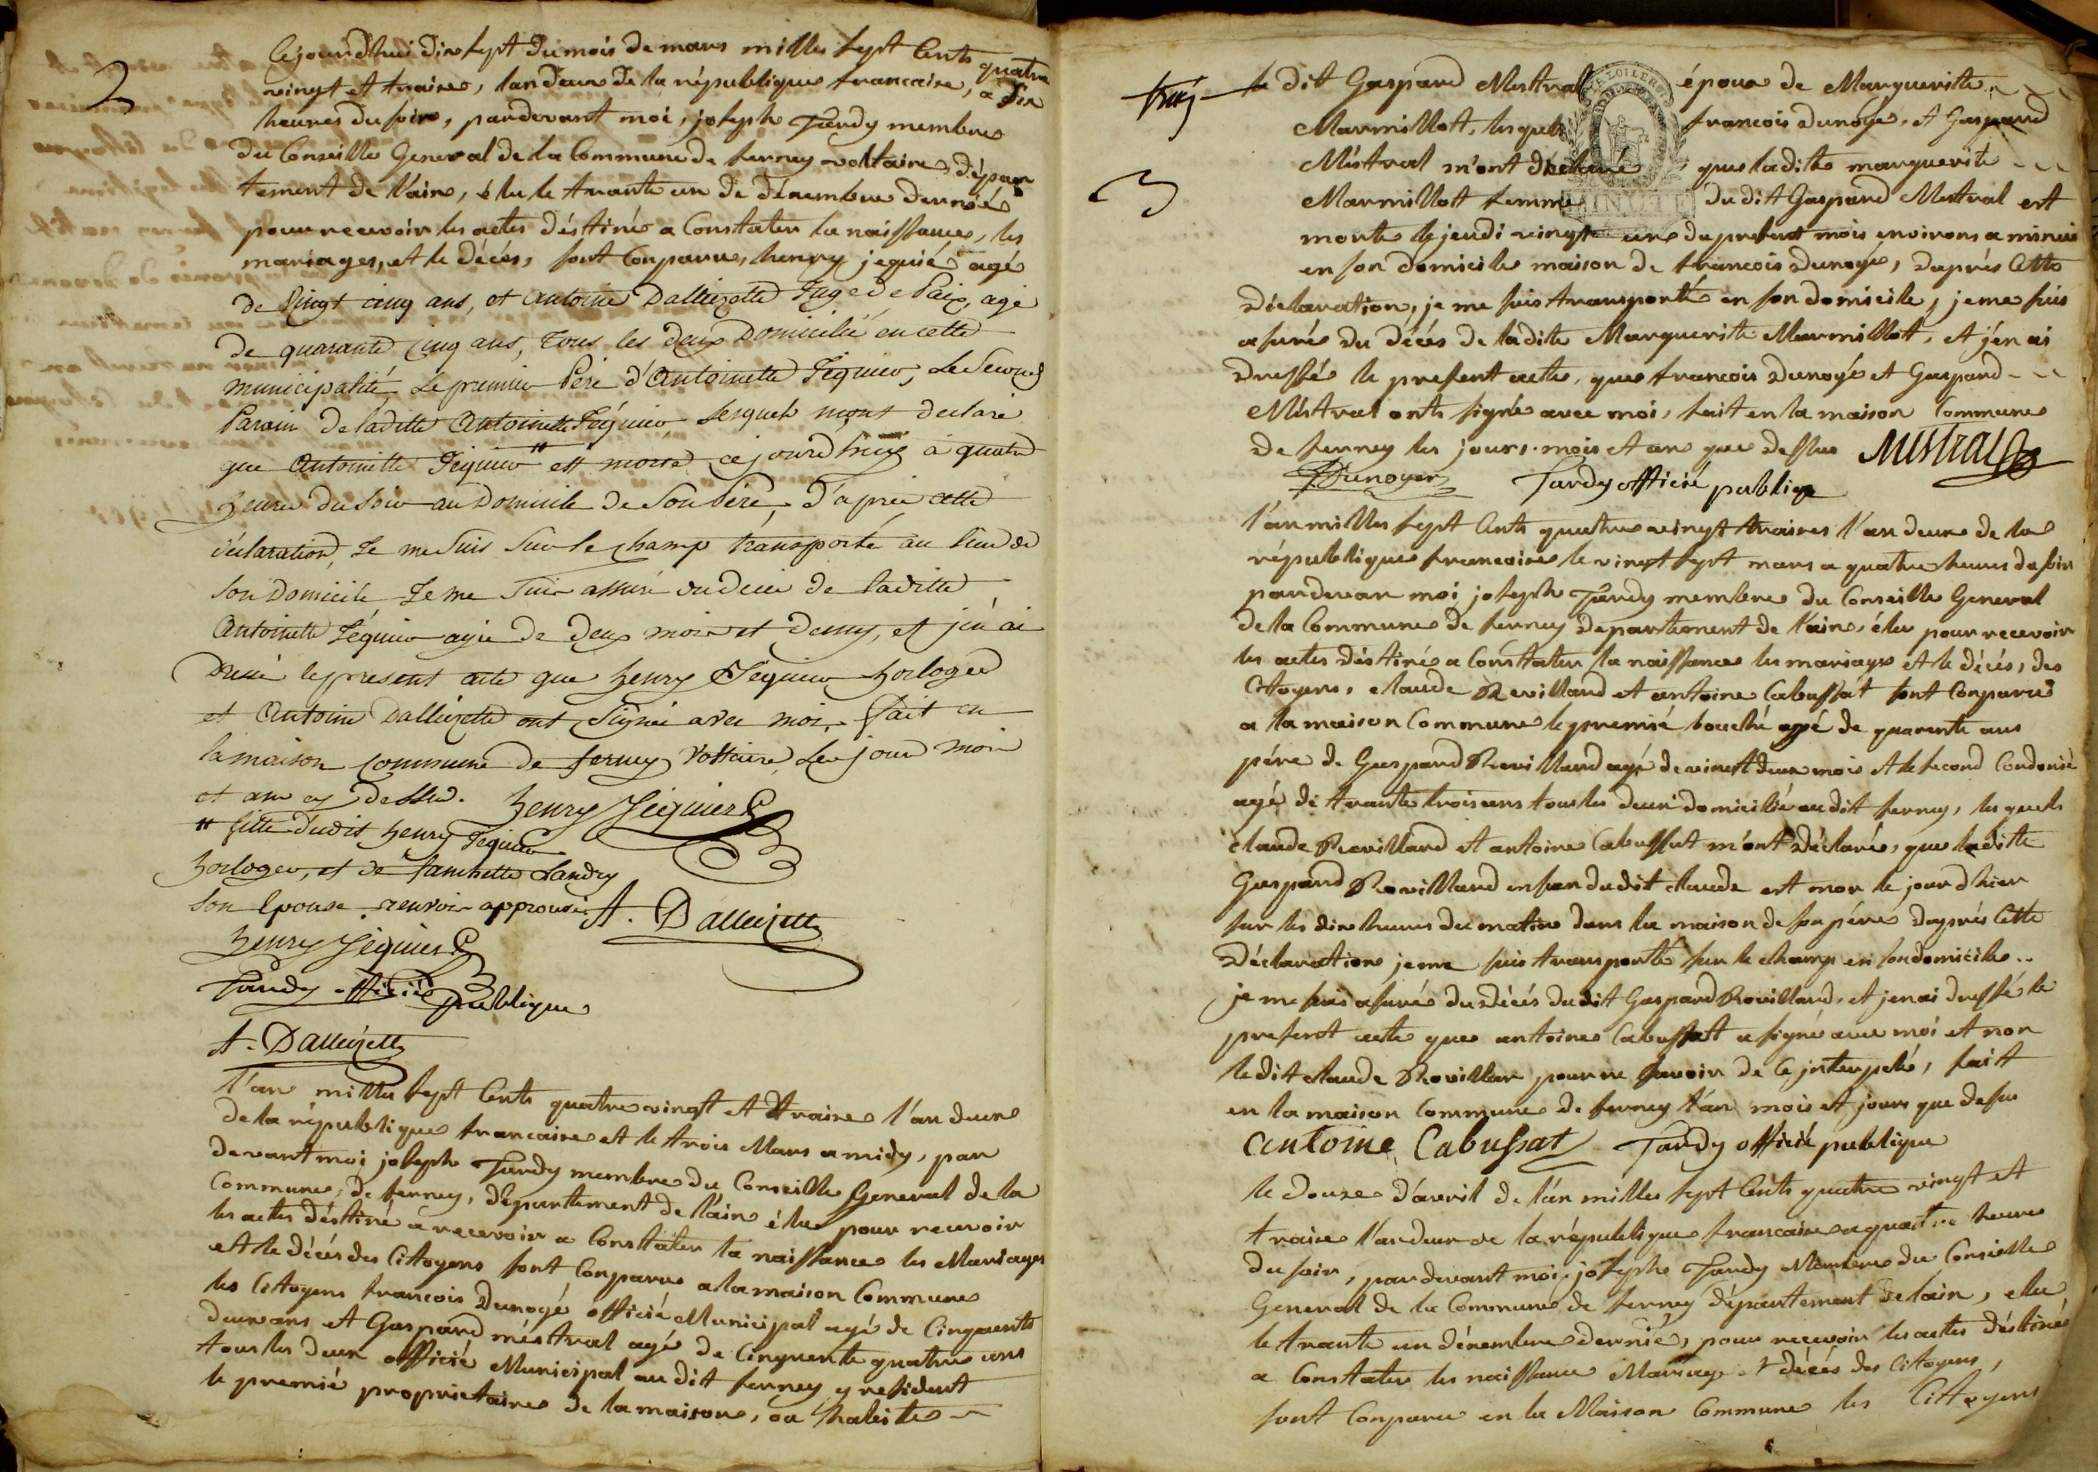 2
Cejourd'hui dix sept du mois de mars mille sept Cents quatre
vingt et traize, lan deux de la république francaise, a dix
heures du soire, pardevant moi, joseph Tardy membre
du Conseille General de la Commune de ferney voltaire, dépar
tement de l'ain, élu le trante un de décembre dernié
pour recevoir les actes déstiné a Constater la naissance, les
mariages, et le décés, sont Conparu, henry jequié agé
de Vingt cinq ans, et antoine Dalleizette Juge de Paix, agé
de quarante cinq ans, Tous les deux Domicilié en cette
municipalité, Le premier Pere d'Antoinette Jéquier, Le Second
Parain de laditte Antoinette Jéquier Lesquels m'ont declaré
que Antoinette Jéquier " est morte ce jourd'huy à quatre
heure du soir au Domicile de Son Pére, d'aprés cette
déclaration, Je me suis Sur le champ transporté au lieu de
son Domicile Je me suis assuré du decé de laditte
Antoinette Jéquier agée de deux mois et demy, et j'en ai
dressé le present acte que henry Jéquier horloger
et Antoine Dalleizette ont Signé avec moi, fait en
la maison commune de ferney Voltaire Les jour mois
et an cy Dessus. henry Jéquier
" fille dudit henry Jéquier
horloger, et de fanchette Landry
son Epouse renvoi approuvé A. Dalleizette
henry Jéquier
Tardy officié publique
A. Dalleizette
l'an mille sept Cents quatre vingt et traize l'an deux
de la république francaise et le trois Mars a midy, par
devant moi joseph Tardy membre du Conseille General de la
Commune, de ferney, département de l'ain élu pour recevoir
les actes déstiné a recevoir a Constater la naissance les Mariages
et le décés des Cittoyens sont Conparu a la maison Commune
les Cittoyens francois Dunogé officié Municipal agé de Cinquante
deux ans et Gaspard méstral agé de Cinquente quatre ans
tous les deux officié Municipal au dit ferney y résident
le premié proprietaire de la maison, ou habite
le dit Gaspard Mestral époux de Margueritte
Marmillot, lesquels francois dunogé, et Gaspard
3
Méstral m'ont déclaré que ladite marguerite
Marmillot femme du dit Gaspard Mestral est
morte le jeudi vingt un du present mois environs a minui
en son domicile maison de francois dunogé, daprés Cette
Déclaration, je me suis transporté en son domicile, je me suis
asuré du décés de ladite Marguerite Marmillot, et j'en ai
dressé le present acte, que francois Dunogé et Gaspard
Méstral onts signé avec moi, fait en la maison Commune
de ferney les jours mois et an que dessus MISTRAL
Dunoyer Tardy officié publiqe
l'an mille sept Cents quatre vingt traize l'an deux de la
république francaise le vingt sept mars a quatre heures du soir
pardevan moi joseph Tardy membre du Conseille General
de la Commune de ferney departement de l'ain, élu pour recevoir
les actes déstiné a Constater la naissance les mariage et le décés, des
Cittoyens, claude Revilland et antoine Cabussat sont Conparu
a la maison Commune le premié bouché agé de quarente ans
pére de Gaspard Revilland agé de vingt deux mois et le second Cordonié
agé de trante trois ans tous les deux domicilié au dit ferney, les quels
claude Revilland et antoine Cabussat m'ont Déclaré, que ledite
Gaspard Revilland enfan du dit claude est mor le jour d'hier
sur les dix heures du matin dans la maison de son pére daprés Cette
Déclaration je me suis transporté sur le champ en son domicile
je me suis asuré du décés du dit Gaspard Revilland, et j'en ai dressé le
present acte que antoine Cabussat a signé avec moi et non
le dit claude Revillan pour ne savoir de Ce jnterpelé, fait
en la maison Commune de ferney l'an mois et jours que desu
antoine Cabussat Tardy officié publique
le douze d'avril de l'an mille sept Cents quatre vingt et
traize l'an deux de la république francaise a quatre heure
du soir, par devant moi, joseph Tardy Membre du Conseille
General de la Commune de ferney département de lain, élu
le trante un décembre dernié, pour recevoir les actes déstiné
a Constater les naissance Mariage et décés des Citoyens,
sont Conparu en la Maison Commune les Cittoyens